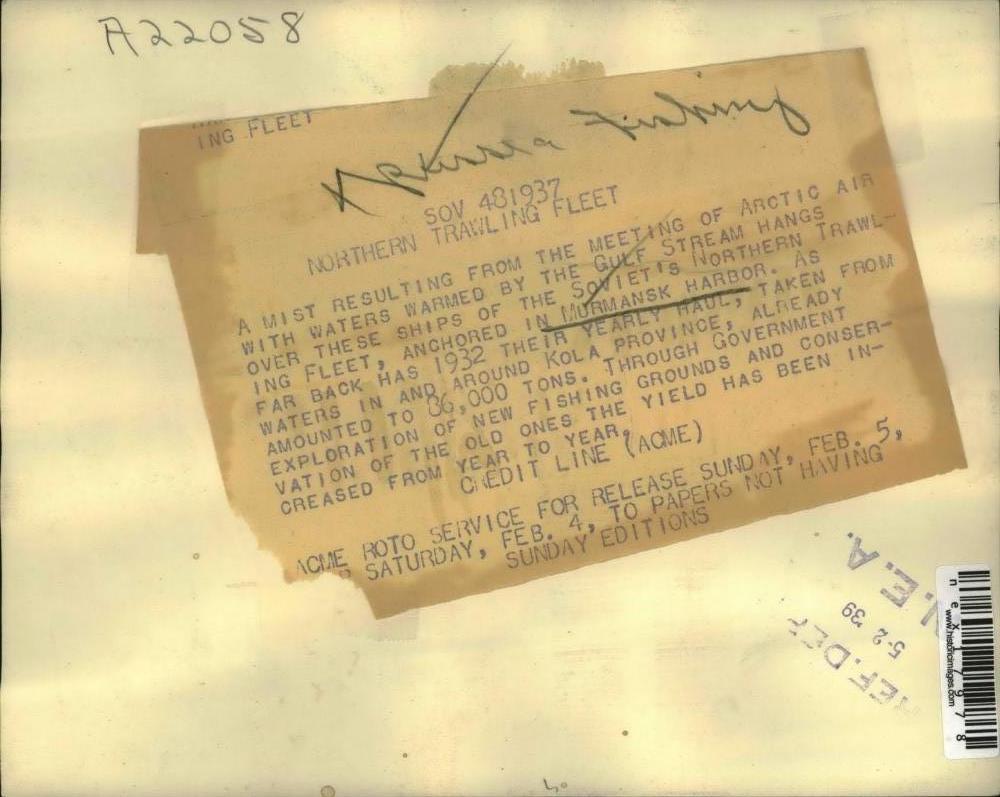 A22058
ING FLEET
Russia Fishing
SOV 481937
NORTHERN TRAWLING FLEET
A MIST RESULTING FROM THE MEETING OF ARCTIC AIR
WITH WATERS WARMED BY THE GULF STREAM HANGS
OVER THESE SHIPS OF THE SOVIET'S NORTHERN TRAWL-
ING FLEET, ANCHORED IN MURMANSK HARBOR. AS
FAR BACK HAS 1932 THEIR YEARLY HAUL, TAKEN FROM
WATERS IN AND AROUND KOLA PROVINCE, ALREADY
AMOUNTED TO 86,000 TONS. THROUGH GOVERNMENT
EXPLORATION OF NEW FISHING GROUNDS AND CONSER-
VATION OF THE OLD ONES THE YIELD HAS BEEN IN-
CREASED FROM YEAR TO YEAR.
CREDIT LINE (ACME)
ACME ROTO SERVICE FOR RELEASE SUNDAY, FEB. 5,
SATURDAY, FEB. 4, TO PAPERS NOT HAVING
SUNDAY EDITIONS
N.E.A.
5-2 '39
REF. DEP
nex17978
www.historicimages.com